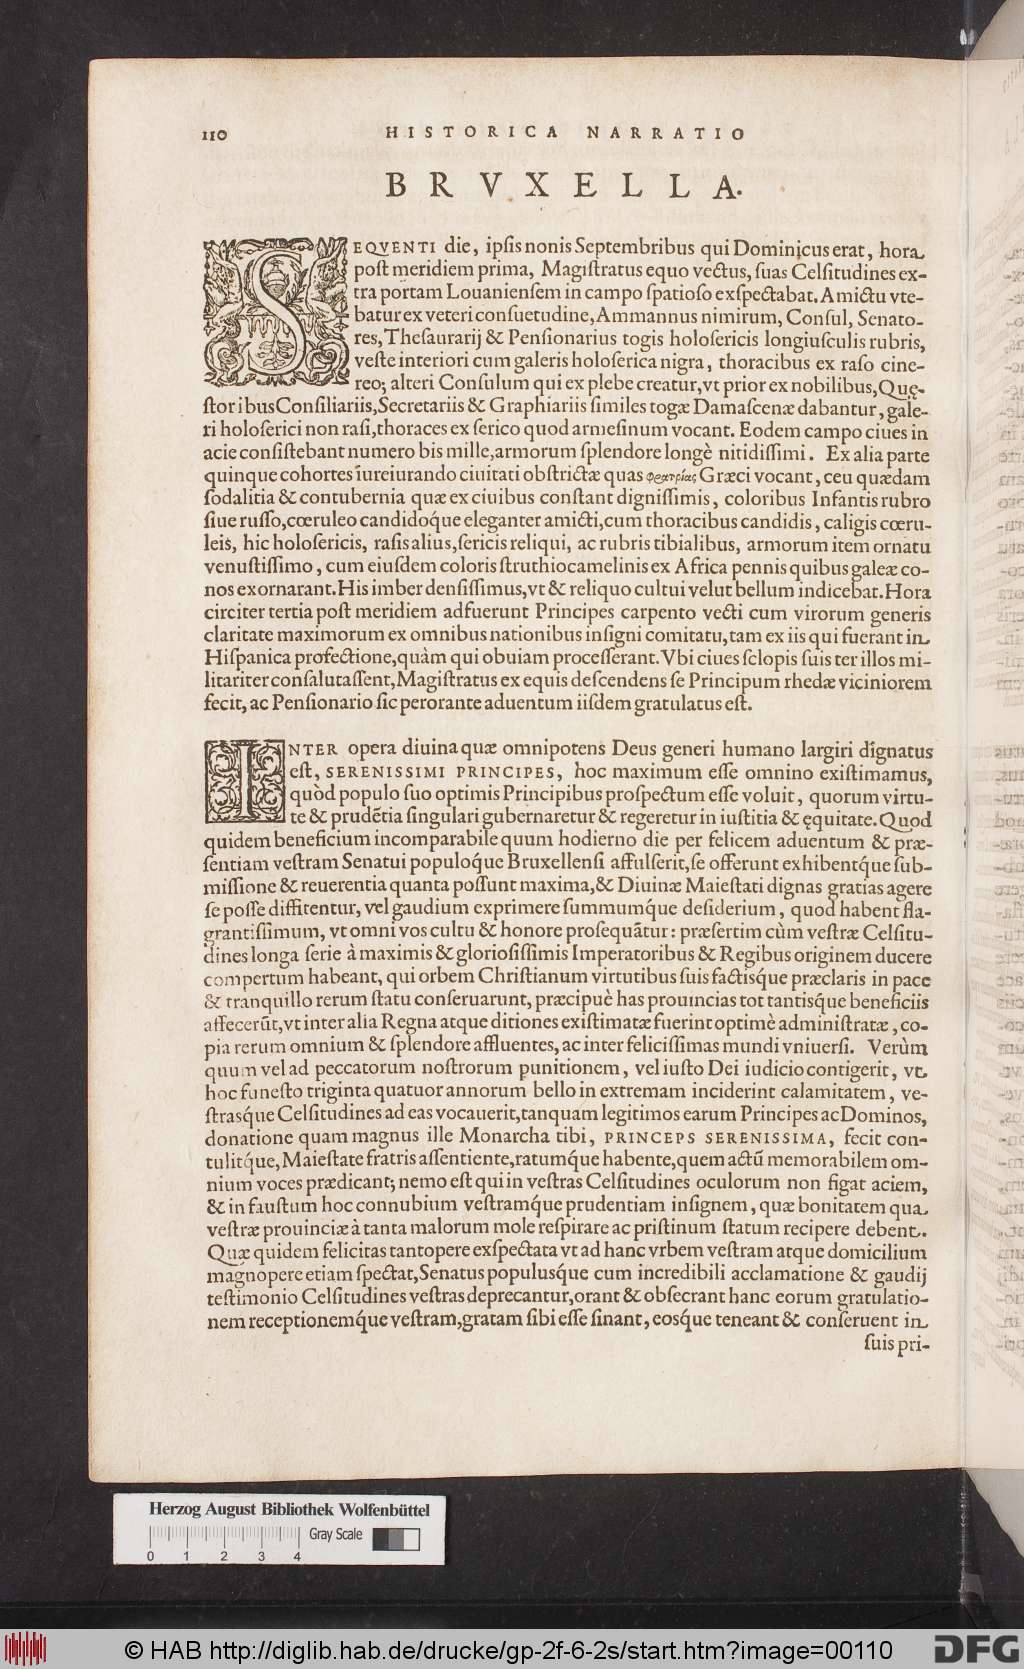 110 HISTORICA NARRATIO
BRVXELLA.
SEQVENTI die, ipsis nonis Septembribus qui Dominicus erat, hora
post meridiem prima, Magistratus equo vectus, suas Celsitudines ex-
tra portam Louaniensem in campo spatioso exspectabat. Amictu vte-
batur ex veteri consuetudine, Ammannus nimirum, Consul, Senato-
res, Thesaurarij & Pensionarius togis holosericis longiusculis rubris,
veste interiori cum galeris holoserica nigra, thoracibus ex raso cine-
reo; alteri Consulum qui ex plebe creatur, vt prior ex nobilibus, Quę-
storibus Consiliariis, Secretariis & Graphiariis similes togæ Damascenæ dabantur, gale-
ri holoserici non rasi, thoraces ex serico quod armesinum vocant. Eodem campo ciues in
acie consistebant numero bis mille, armorum splendore longè nitidissimi. Ex alia parte
quinque cohortes iureiurando ciuitati obstrictæ quas φρατρίας Græci vocant, ceu quædam
sodalitia & contubernia quæ ex ciuibus constant dignissimis, coloribus Infantis rubro
siue russo, cœruleo candidoq́ue eleganter amicti, cum thoracibus candidis, caligis cœru-
leis, hic holosericis, rasis alius, sericis reliqui, ac rubris tibialibus, armorum item ornatu
venustissimo, cum eiusdem coloris struthiocamelinis ex Africa pennis quibus galeæ co-
nos exornarant. His imber densissimus, vt & reliquo cultui velut bellum indicebat. Hora
circiter tertia post meridiem adfuerunt Principes carpento vecti cum virorum generis
claritate maximorum ex omnibus nationibus insigni comitatu, tam ex iis qui fuerant in
Hispanica profectione, quàm qui obuiam processerant. Vbi ciues sclopis suis ter illos mi-
litariter consalutassent, Magistratus ex equis descendens se Principum rhedæ viciniorem
fecit, ac Pensionario sic perorante aduentum iisdem gratulatus est.
INTER opera diuina quæ omnipotens Deus generi humano largiri dignatus
est, SERENISSIMI PRINCIPES, hoc maximum esse omnino existimamus,
quòd populo suo optimis Principibus prospectum esse voluit, quorum virtu-
te & prudētia singulari gubernaretur & regeretur in iustitia & ęquitate. Quod
quidem beneficium incomparabile quum hodierno die per felicem aduentum & præ-
sentiam vestram Senatui populoq́ue Bruxellensi affulserit, se offerunt exhibentq́ue sub-
missione & reuerentia quanta possunt maxima, & Diuinæ Maiestati dignas gratias agere
se posse diffitentur, vel gaudium exprimere summumq́ue desiderium, quod habent fla-
grantissimum, vt omni vos cultu & honore prosequātur: præsertim cùm vestræ Celsitu-
dines longa serie à maximis & gloriosissimis Imperatoribus & Regibus originem ducere
compertum habeant, qui orbem Christianum virtutibus suis factisq́ue præclaris in pace
& tranquillo rerum statu conseruarunt, præcipuè has prouincias tot tantisq́ue beneficiis
affecerūt, vt inter alia Regna atque ditiones existimatæ fuerint optimè administratæ, co-
pia rerum omnium & splendore affluentes, ac inter felicissimas mundi vniuersi. Verùm
quum vel ad peccatorum nostrorum punitionem, vel iusto Dei iudicio contigerit, vt
hoc funesto triginta quatuor annorum bello in extremam inciderint calamitatem, ve-
strasq́ue Celsitudines ad eas vocauerit, tanquam legitimos earum Principes ac Dominos,
donatione quam magnus ille Monarcha tibi, PRINCEPS SERENISSIMA, fecit con-
tulitq́ue, Maiestate fratris assentiente, ratumq́ue habente, quem actū memorabilem om-
nium voces prædicant; nemo est qui in vestras Celsitudines oculorum non figat aciem,
& in faustum hoc connubium vestramq́ue prudentiam insignem, quæ bonitatem qua
vestræ prouinciæ à tanta malorum mole respirare ac pristinum statum recipere debent.
Quæ quidem felicitas tantopere exspectata vt ad hanc vrbem vestram atque domicilium
magnopere etiam spectat, Senatus populusq́ue cum incredibili acclamatione & gaudij
testimonio Celsitudines vestras deprecantur, orant & obsecrant hanc eorum gratulatio-
nem receptionemq́ue vestram, gratam sibi esse sinant, eosq́ue teneant & conseruent in
suis pri-
Herzog August Bibliothek Wolfenbüttel
Gray Scale
0 1 2 3 4
© HAB http://diglib.hab.de/drucke/gp-2f-6-2s/start.htm?image=00110
DFG